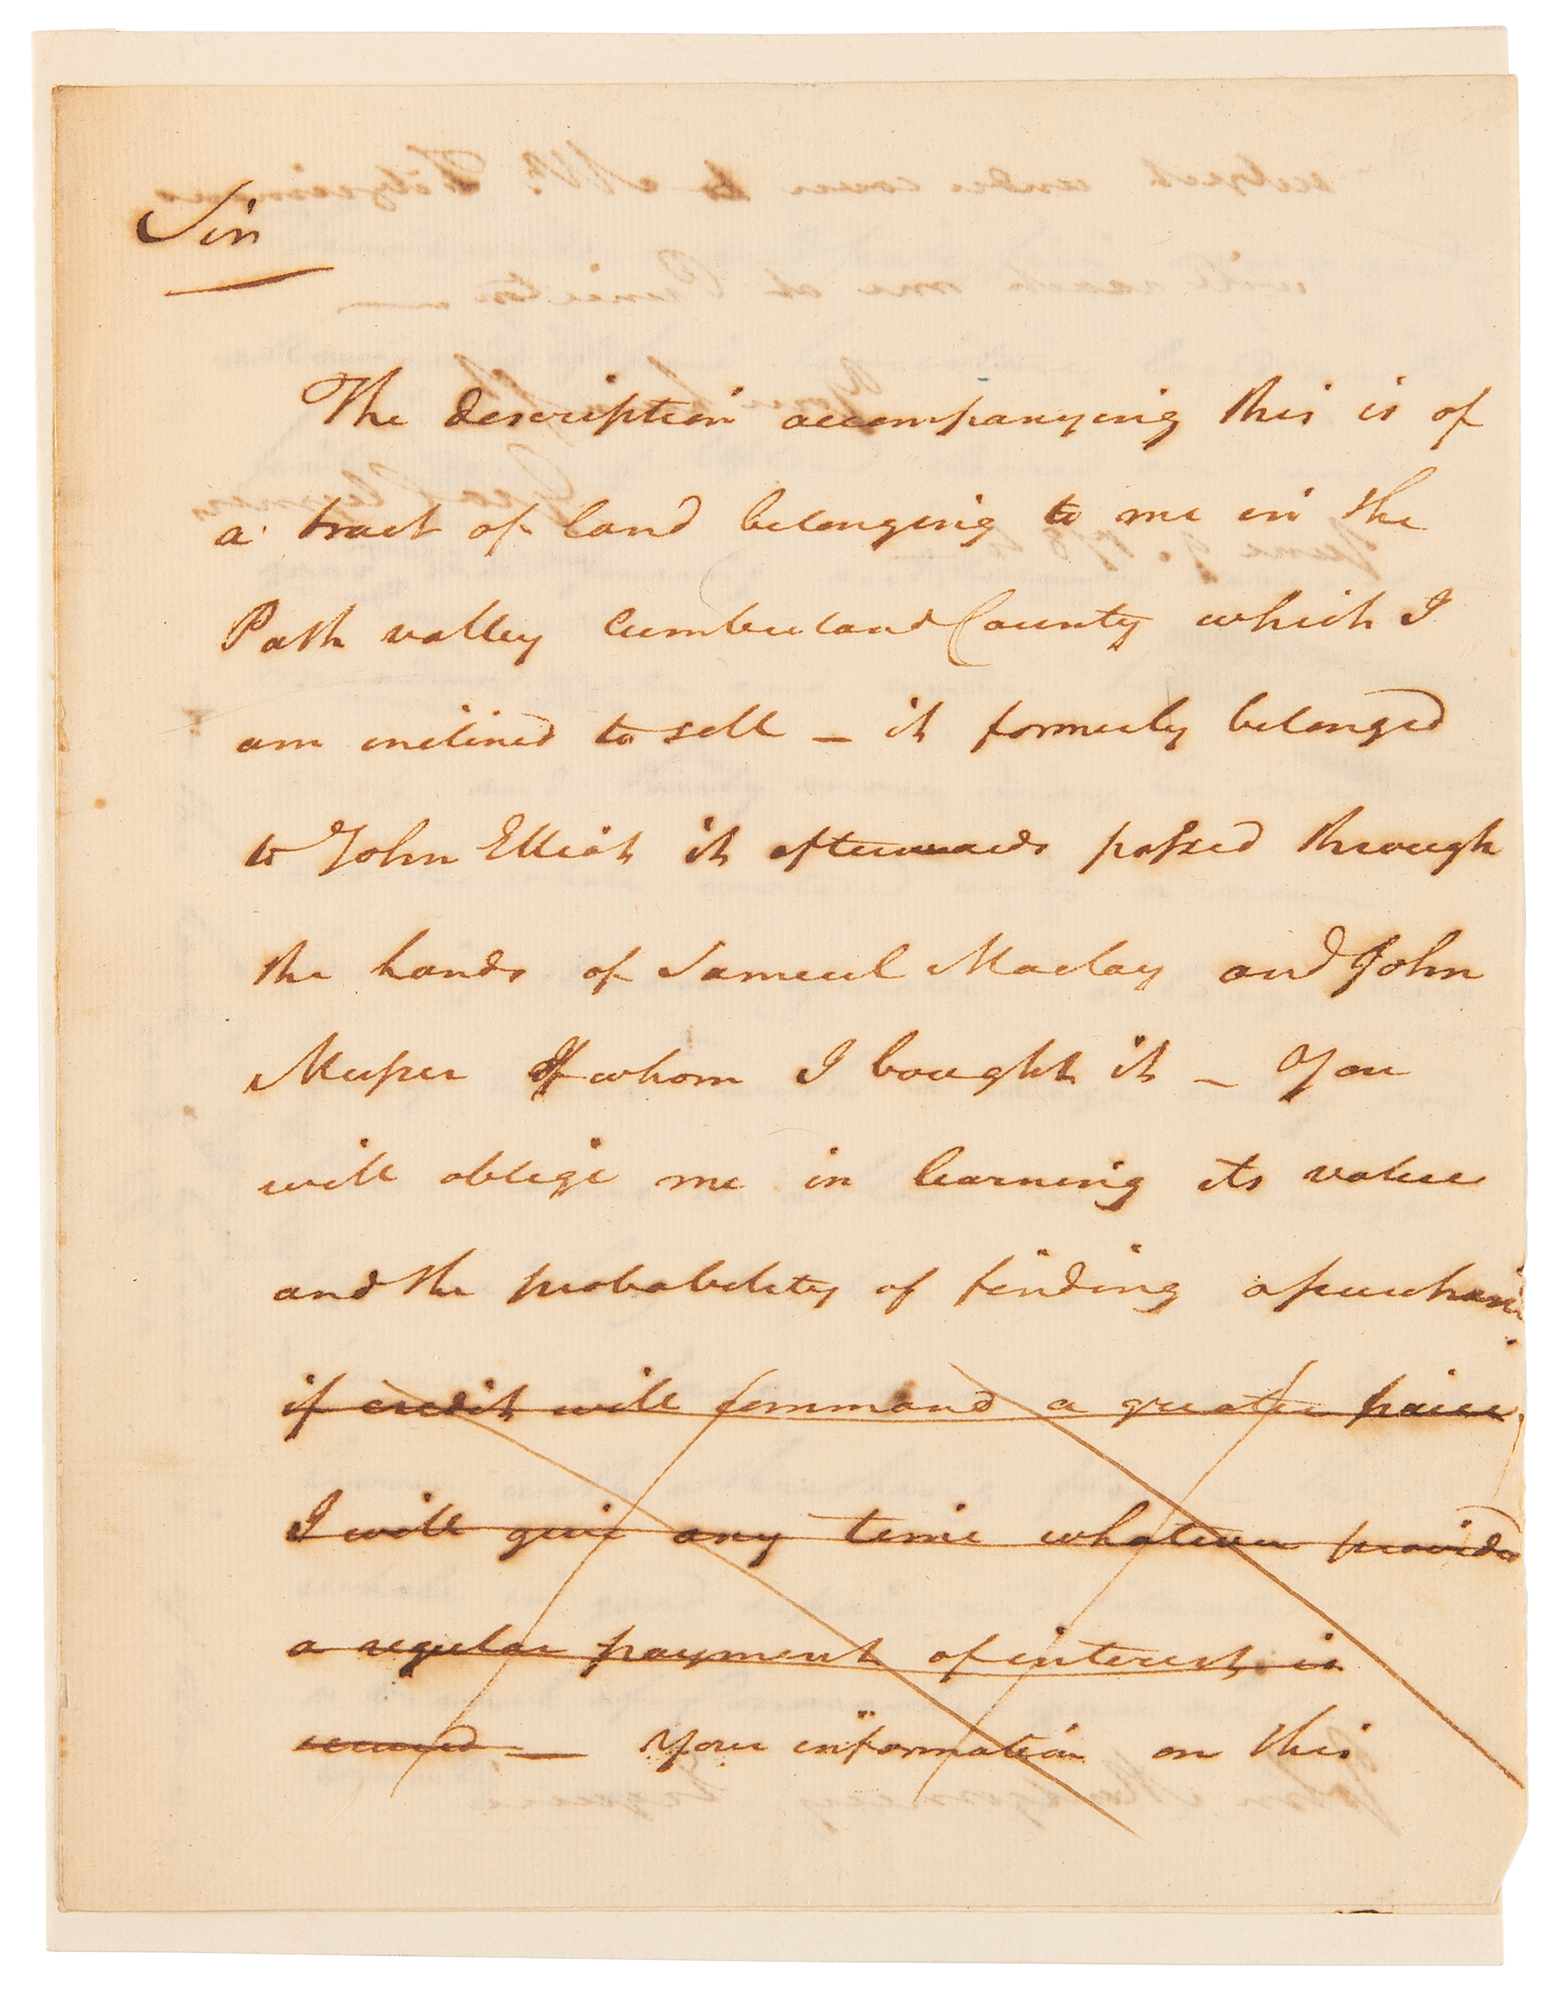 Sir
The description accompanying this is of
a tract of land belonging to me in the
Path valley Cumberland County which I
am inclined to sell – it formerly belonged
to John Elliot it afterwards passed through
the hands of Samuel Maclay and John
Musser of whom I bought it – You
will oblige me in learning its value
and the probability of finding a purchaser
if credit will command a greater price
I will give any time whatever provided
a regular payment of interest is
secured — Your information on this
subject under cover to Mr. Fitzsimons
will reach me at Princeton —
Geo Clymer
John Montgomery Esquire